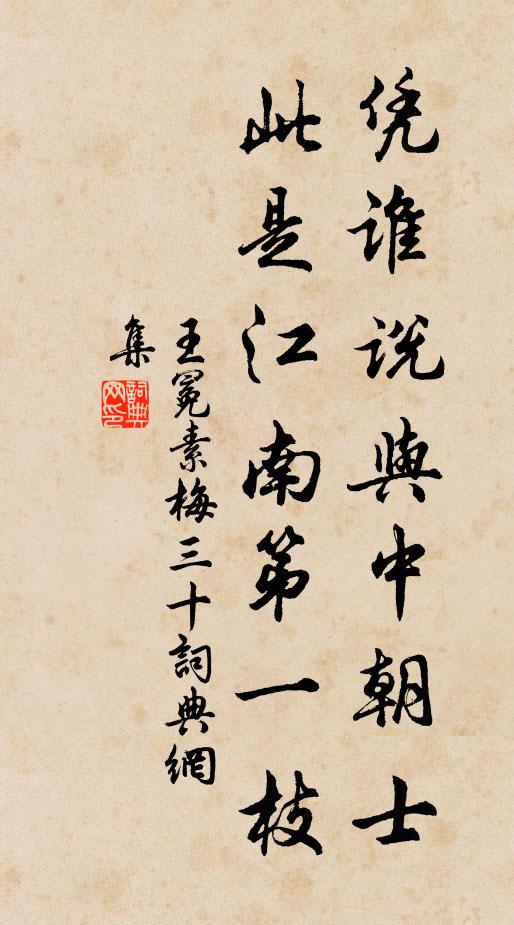 凭誰説與中朝士
此是江南第一枝
王冕素梅三十詞典網
集
詞典
网印